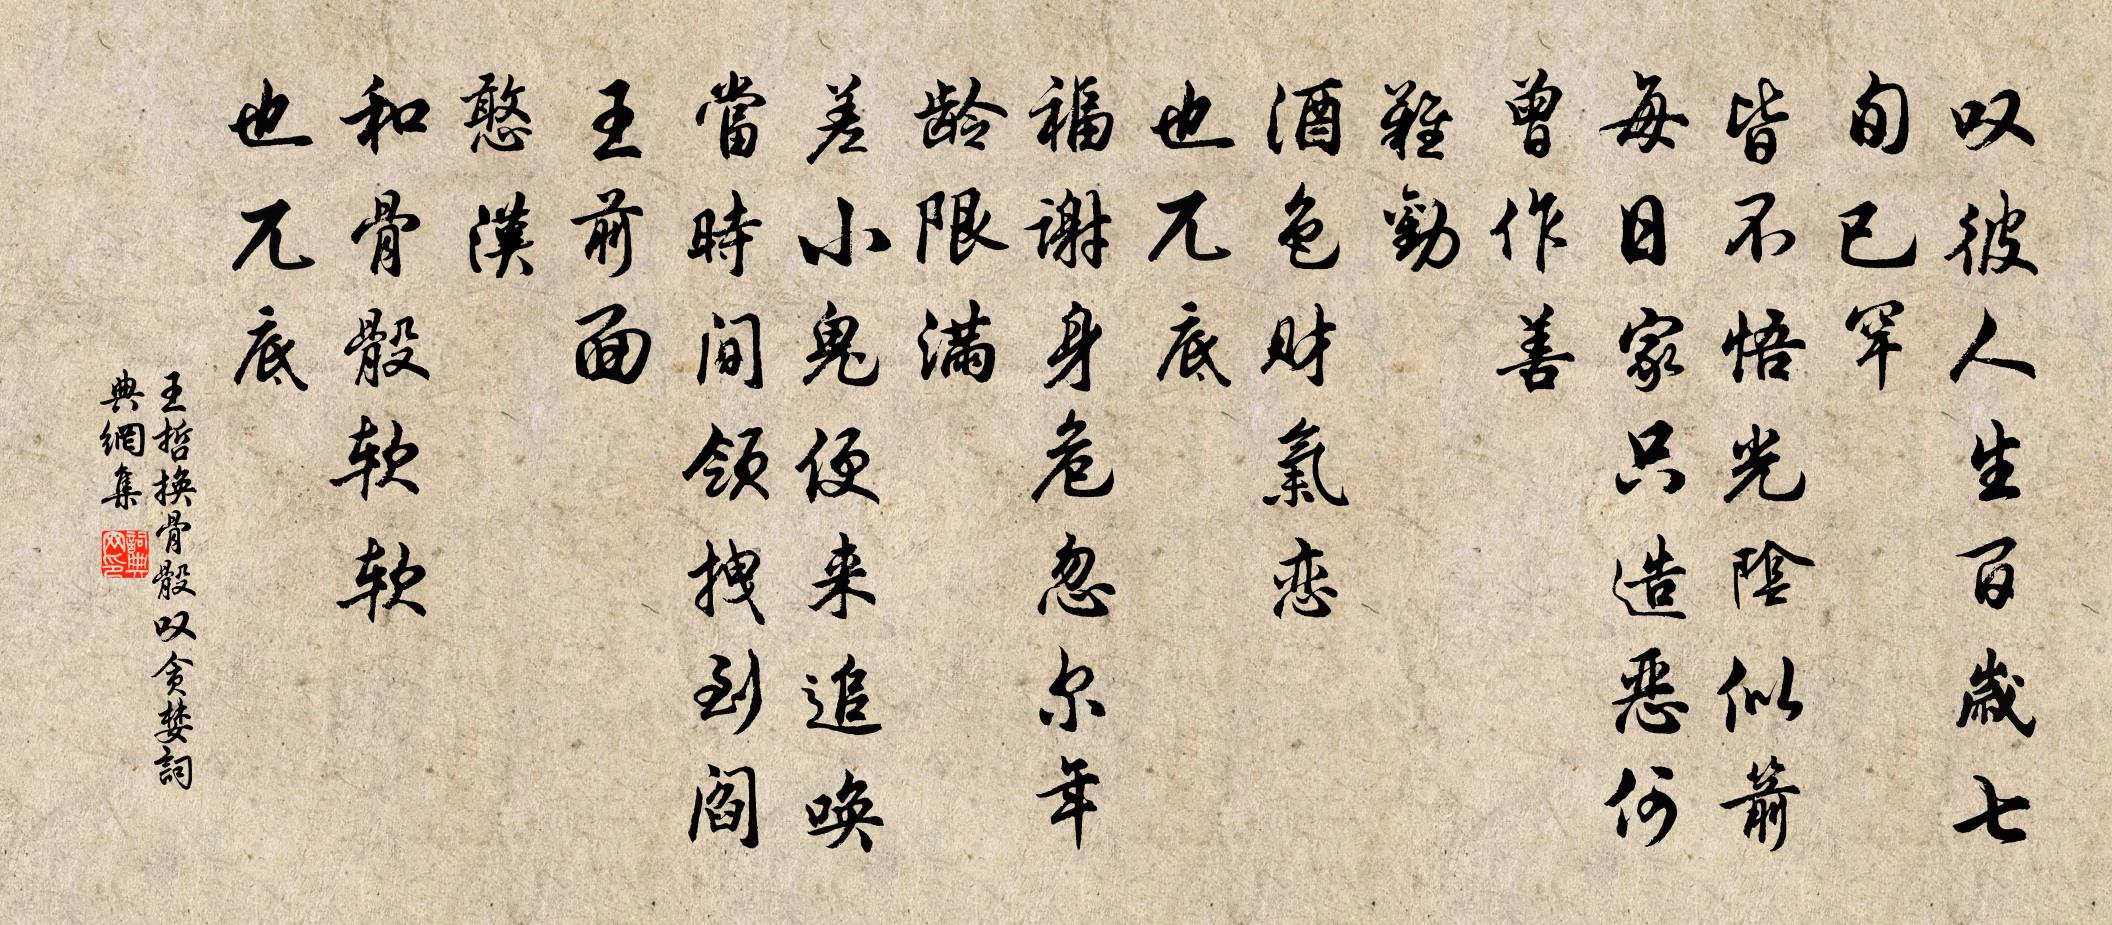 叹彼人生百歲七
旬已罕
皆不悟光陰似箭
每日家只造惡何
曾作善
難勸
酒色財氣恋
也兀底
福謝身危忽尔年
龄限满
差小鬼便来追唤
當時间领拽到阎
王前面
憨漢
和骨骰软软
也兀底
王哲换骨骰叹贪婪詞
典網集
詞典网印